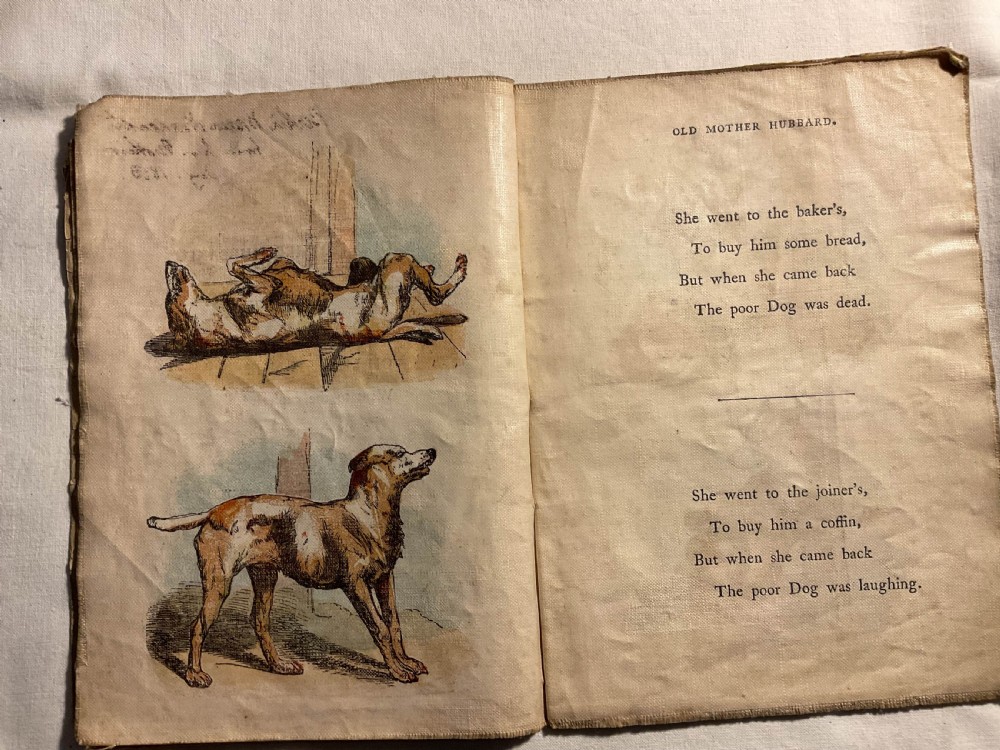 OLD MOTHER HUBBARD.
She went to the baker's,
To buy him some bread,
But when she came back
The poor Dog was dead.
She went to the joiner's,
To buy him a coffin,
But when she came back
The poor Dog was laughing.